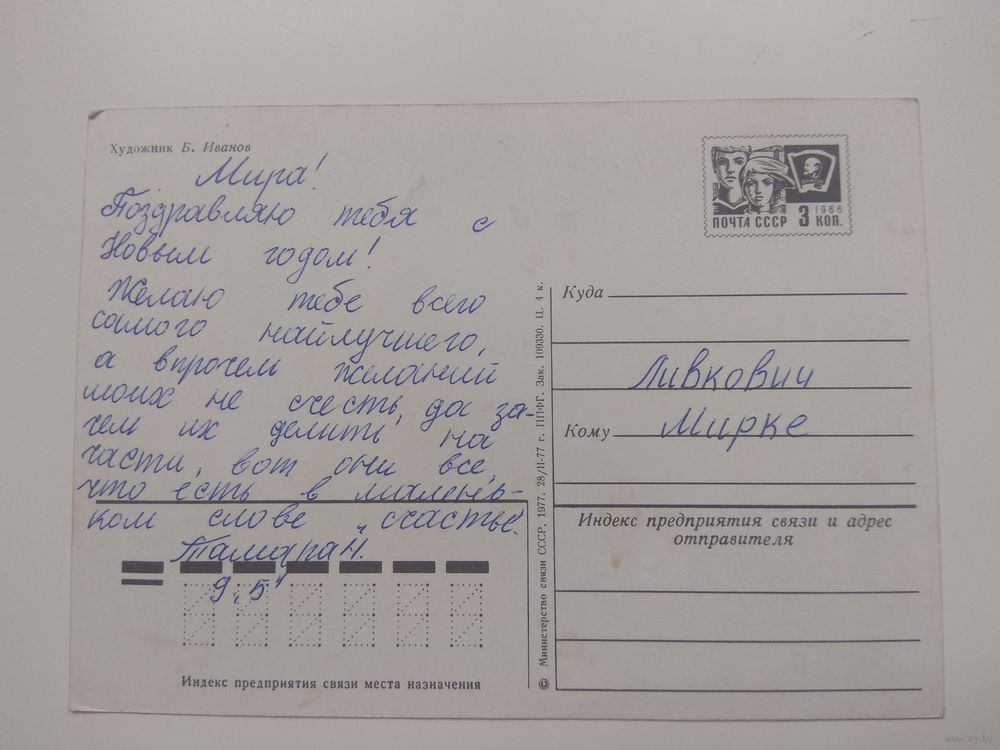 Художник Б. Иванов
Мира!
Поздравляю тебя с
Новым годом!
Желаю тебе всего
самого найлучшего,
а впрочем желаний
моих не счесть, да за-
чем их делить на
части, вот они все,
что есть в малень-
ком слове „счастье".
Тамара Н.
9„Б"
Индекс предприятия связи места назначения
© Министерство связи СССР, 1977. 28/II-77 г. ППФГ. Зак. 109330. Ц. 4 к.
1966
ПОЧТА СССР 3 КОП.
Куда
Ливкович
Кому Мирке
Индекс предприятия связи и адрес
отправителя
www.ay.by